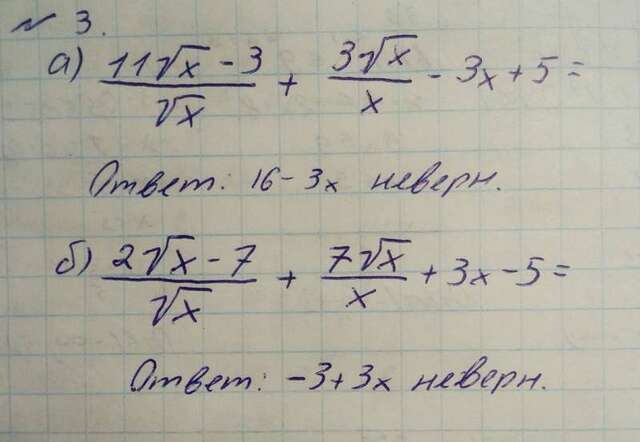 № 3.
а) (11√x - 3)/√x + 3√x/x - 3x + 5 =
Ответ: 16 - 3x неверн.
б) (2√x - 7)/√x + 7√x/x + 3x - 5 =
Ответ: -3 + 3x неверн.